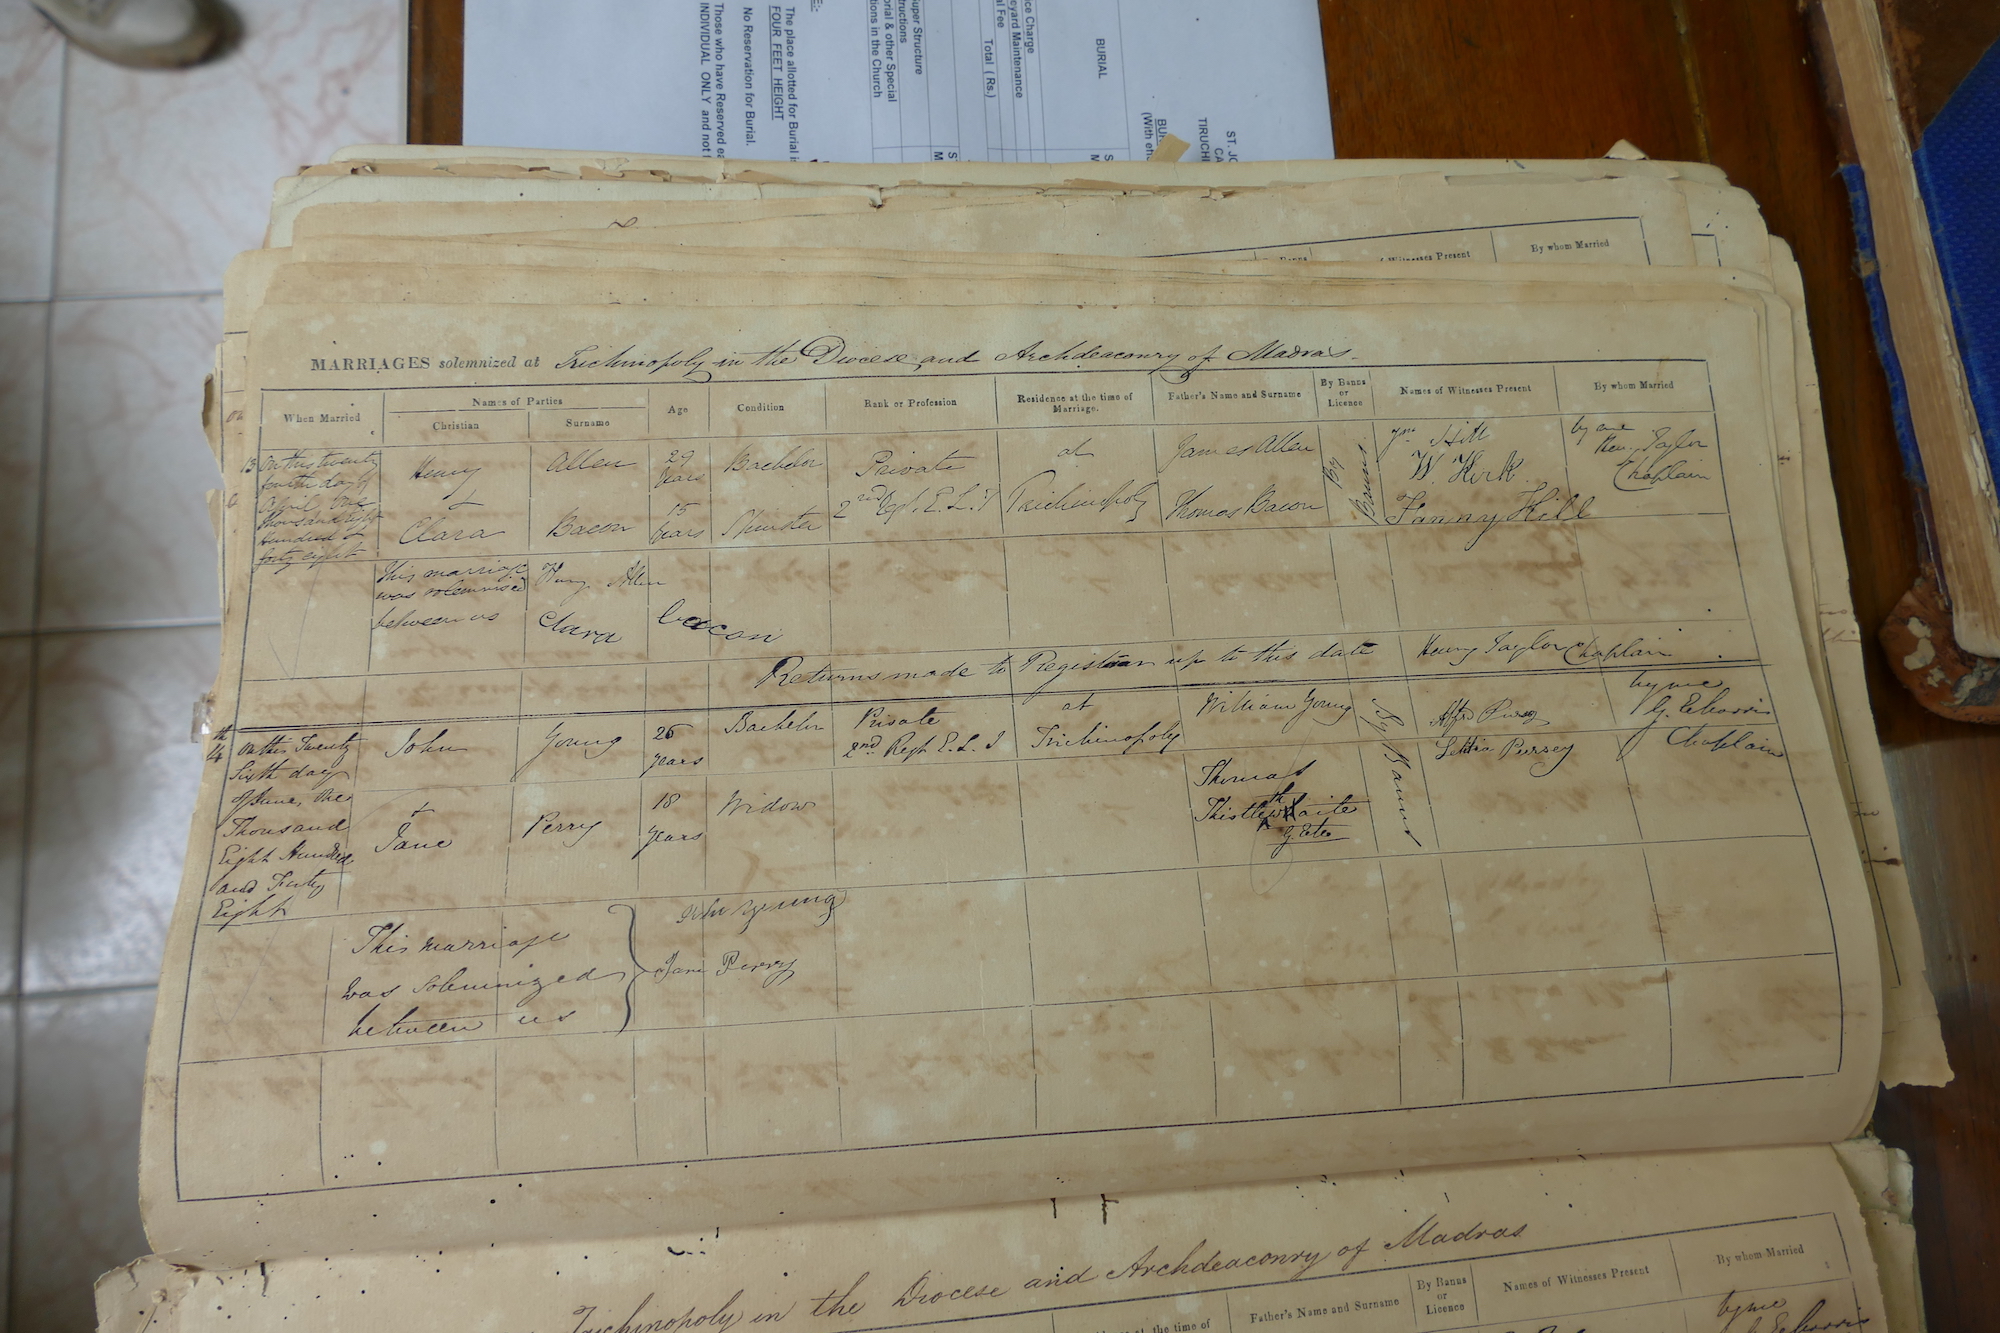 ST. JO
TIRUCHI
BURIAL
Total ( Rs.)
ice Charge
eyard Maintenance
al Fee
uper Structure
orial & other Special
tions in the Church
The place allotted for Burial is
FOUR FEET HEIGHT
No Reservation for Burial.
Those who have Reserved ea
INDIVIDUAL ONLY and not
Witnesses Present
By whom Married
MARRIAGES solemnized at Trichinopoly in the Diocese and Archdeaconry of Madras
When Married
Names of Parties
Christian
Surname
Age
Condition
Rank or Profession
Residence at the time of
Marriage.
Father's Name and Surname
By Banns
or
Licence
Names of Witnesses Present
By whom Married
13
On this twenty
fourth day of
April One
thousand eight
hundred &
forty eight
Henry
&
Clara
Allen
Bacon
29
Years
15
Years
Bachelor
Spinster
Private
2nd Regt. E. L. I
at
Trichinopoly
James Allen
Thomas Bacon
By Banns
Hill
W. Kirk
Fanny Hill
by me
Hen. Taylor
Chaplain
This marriage
was solemnised
between us
Henry Allen
Clara bacon
Returns made to Registrar up to this date Henry Taylor Chaplain
14th
On this Twenty
Sixth day
of June, One
Thousand
Eight Hundred
and Forty
Eight
John
&
Jane
Young
Perry
26
years
18
years
Bachelor
Widow
Private
2nd Regt E. L. I
at
Trichinopoly
William Young
Thomas
Thistlewthaite
By Banns
Alfred Pursey
Letitia Pursey
by me
Chaplain
This marriage
was solemnized
between us
John Young
Jane Perry
Trichinopoly in the Diocese and Archdeaconry of Madras
at the time of
Father's Name and Surname
By Banns
or
Licence
Names of Witnesses Present
By whom Married
by me